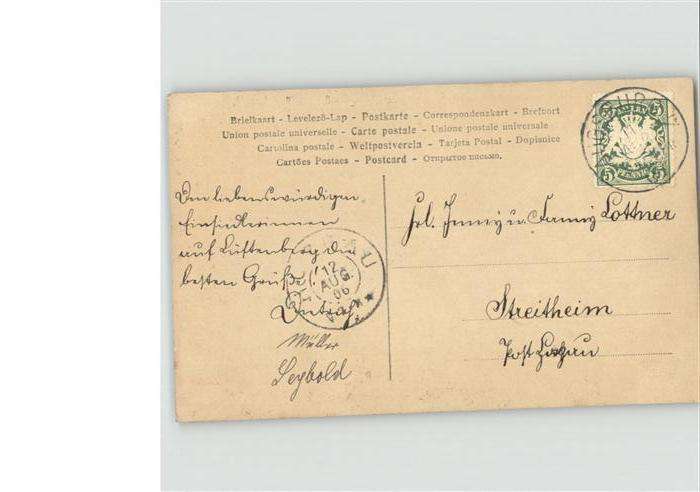 Briefkaart - Levelező-Lap - Postkarte - Correspondenzkart - Brefkort
Union postale universelle - Carte postale - Unione postale universale
Cartolina postale - Weltpostverein - Tarjeta Postal - Dopisnice
Cartões Postaes - Postcard - Открытое письмо.
5 5
BAYERN
5 PFENNIG 5
Den liebenswürdigen
Einsiedlerinnen
auf Lüftenberg die
besten Grüße!
Müller
Leybold
12
AUG.
06
Frl. Jenny u. Fanny Lottner
Streitheim
Post